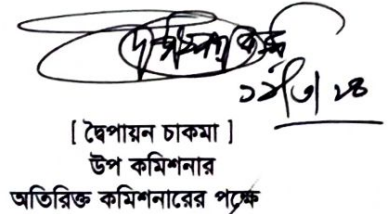 ১২/৩/২৪
[ দ্বৈপায়ন চাকমা ]
উপ কমিশনার
অতিরিক্ত কমিশনারের পক্ষে